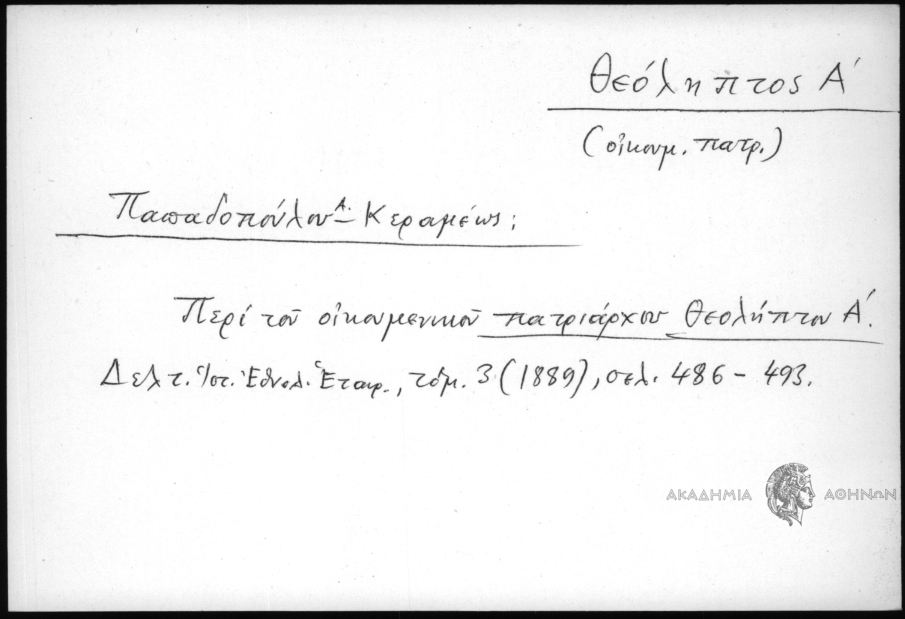 Θεόληπτος Α΄
(οἰκουμ. πατρ.)
Παπαδοπούλου Α. – Κεραμέως:
Περί τοῦ οἰκουμενικοῦ πατριάρχου Θεολήπτου Α΄.
Δελτ. Ἱστ. Ἐθνολ. Ἑταιρ., τόμ. 3 (1889), σελ. 486 – 493.
ΑΚΑΔΗΜΙΑ ΑΘΗΝΩΝ